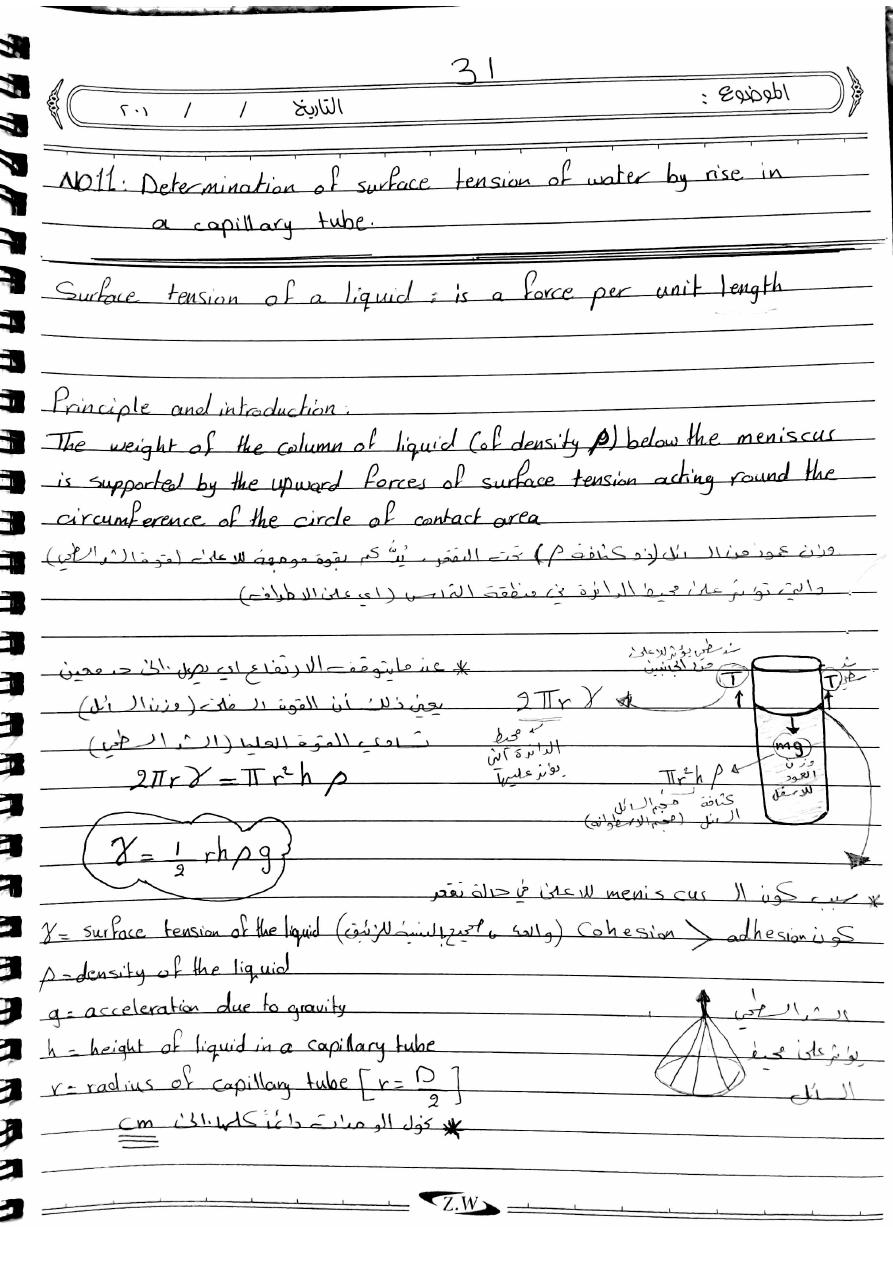 31
الموضوع : التاريخ / / ٢٠١
NO11: Determination of surface tension of water by rise in
a capillary tube.
Surface tension of a liquid : is a force per unit length
Principle and introduction :
The weight of the column of liquid (of density ρ) below the meniscus
is supported by the upward forces of surface tension acting round the
circumference of the circle of contact area
وزن عمود من السائل (ذو كثافة ρ) تحت التقعر، يُدعم بقوة موجهة للاعلى (قوة الشد السطحي)
والتي تؤثر على محيط الدائرة في منطقة التماس (اي على الاطراف)
* عندما يتوقف الارتفاع اي يصل الى حد معين
يعني ذلك أن القوة السفلى (وزن السائل)
تساوي القوة العليا (الشد السطحي)
2πrγ = πr²h ρ
شد سطحي يؤثر للاعلى
من الجانبين
T
T
شد
سطحي
2πrγ
محيط
الدائرة التي
يؤثر عليها
mg
وزن
العمود
للاسفل
πr²h ρ
كثافة السائل
حجم السائل (حجم الاسطوانة)
γ = 1/2 rhρg
* سبب كون الـ meniscus للاعلى في حالة تقعر
كون adhesion > cohesion (والعكس صحيح بالنسبة للزئبق)
γ = surface tension of the liquid
ρ = density of the liquid
g = acceleration due to gravity
h = height of liquid in a capillary tube
r = radius of capillary tube [r = D/2]
الشد السطحي
يؤثر على محيط
السائل
* نحول الوحدات دائماً كلها الى cm
Z.W